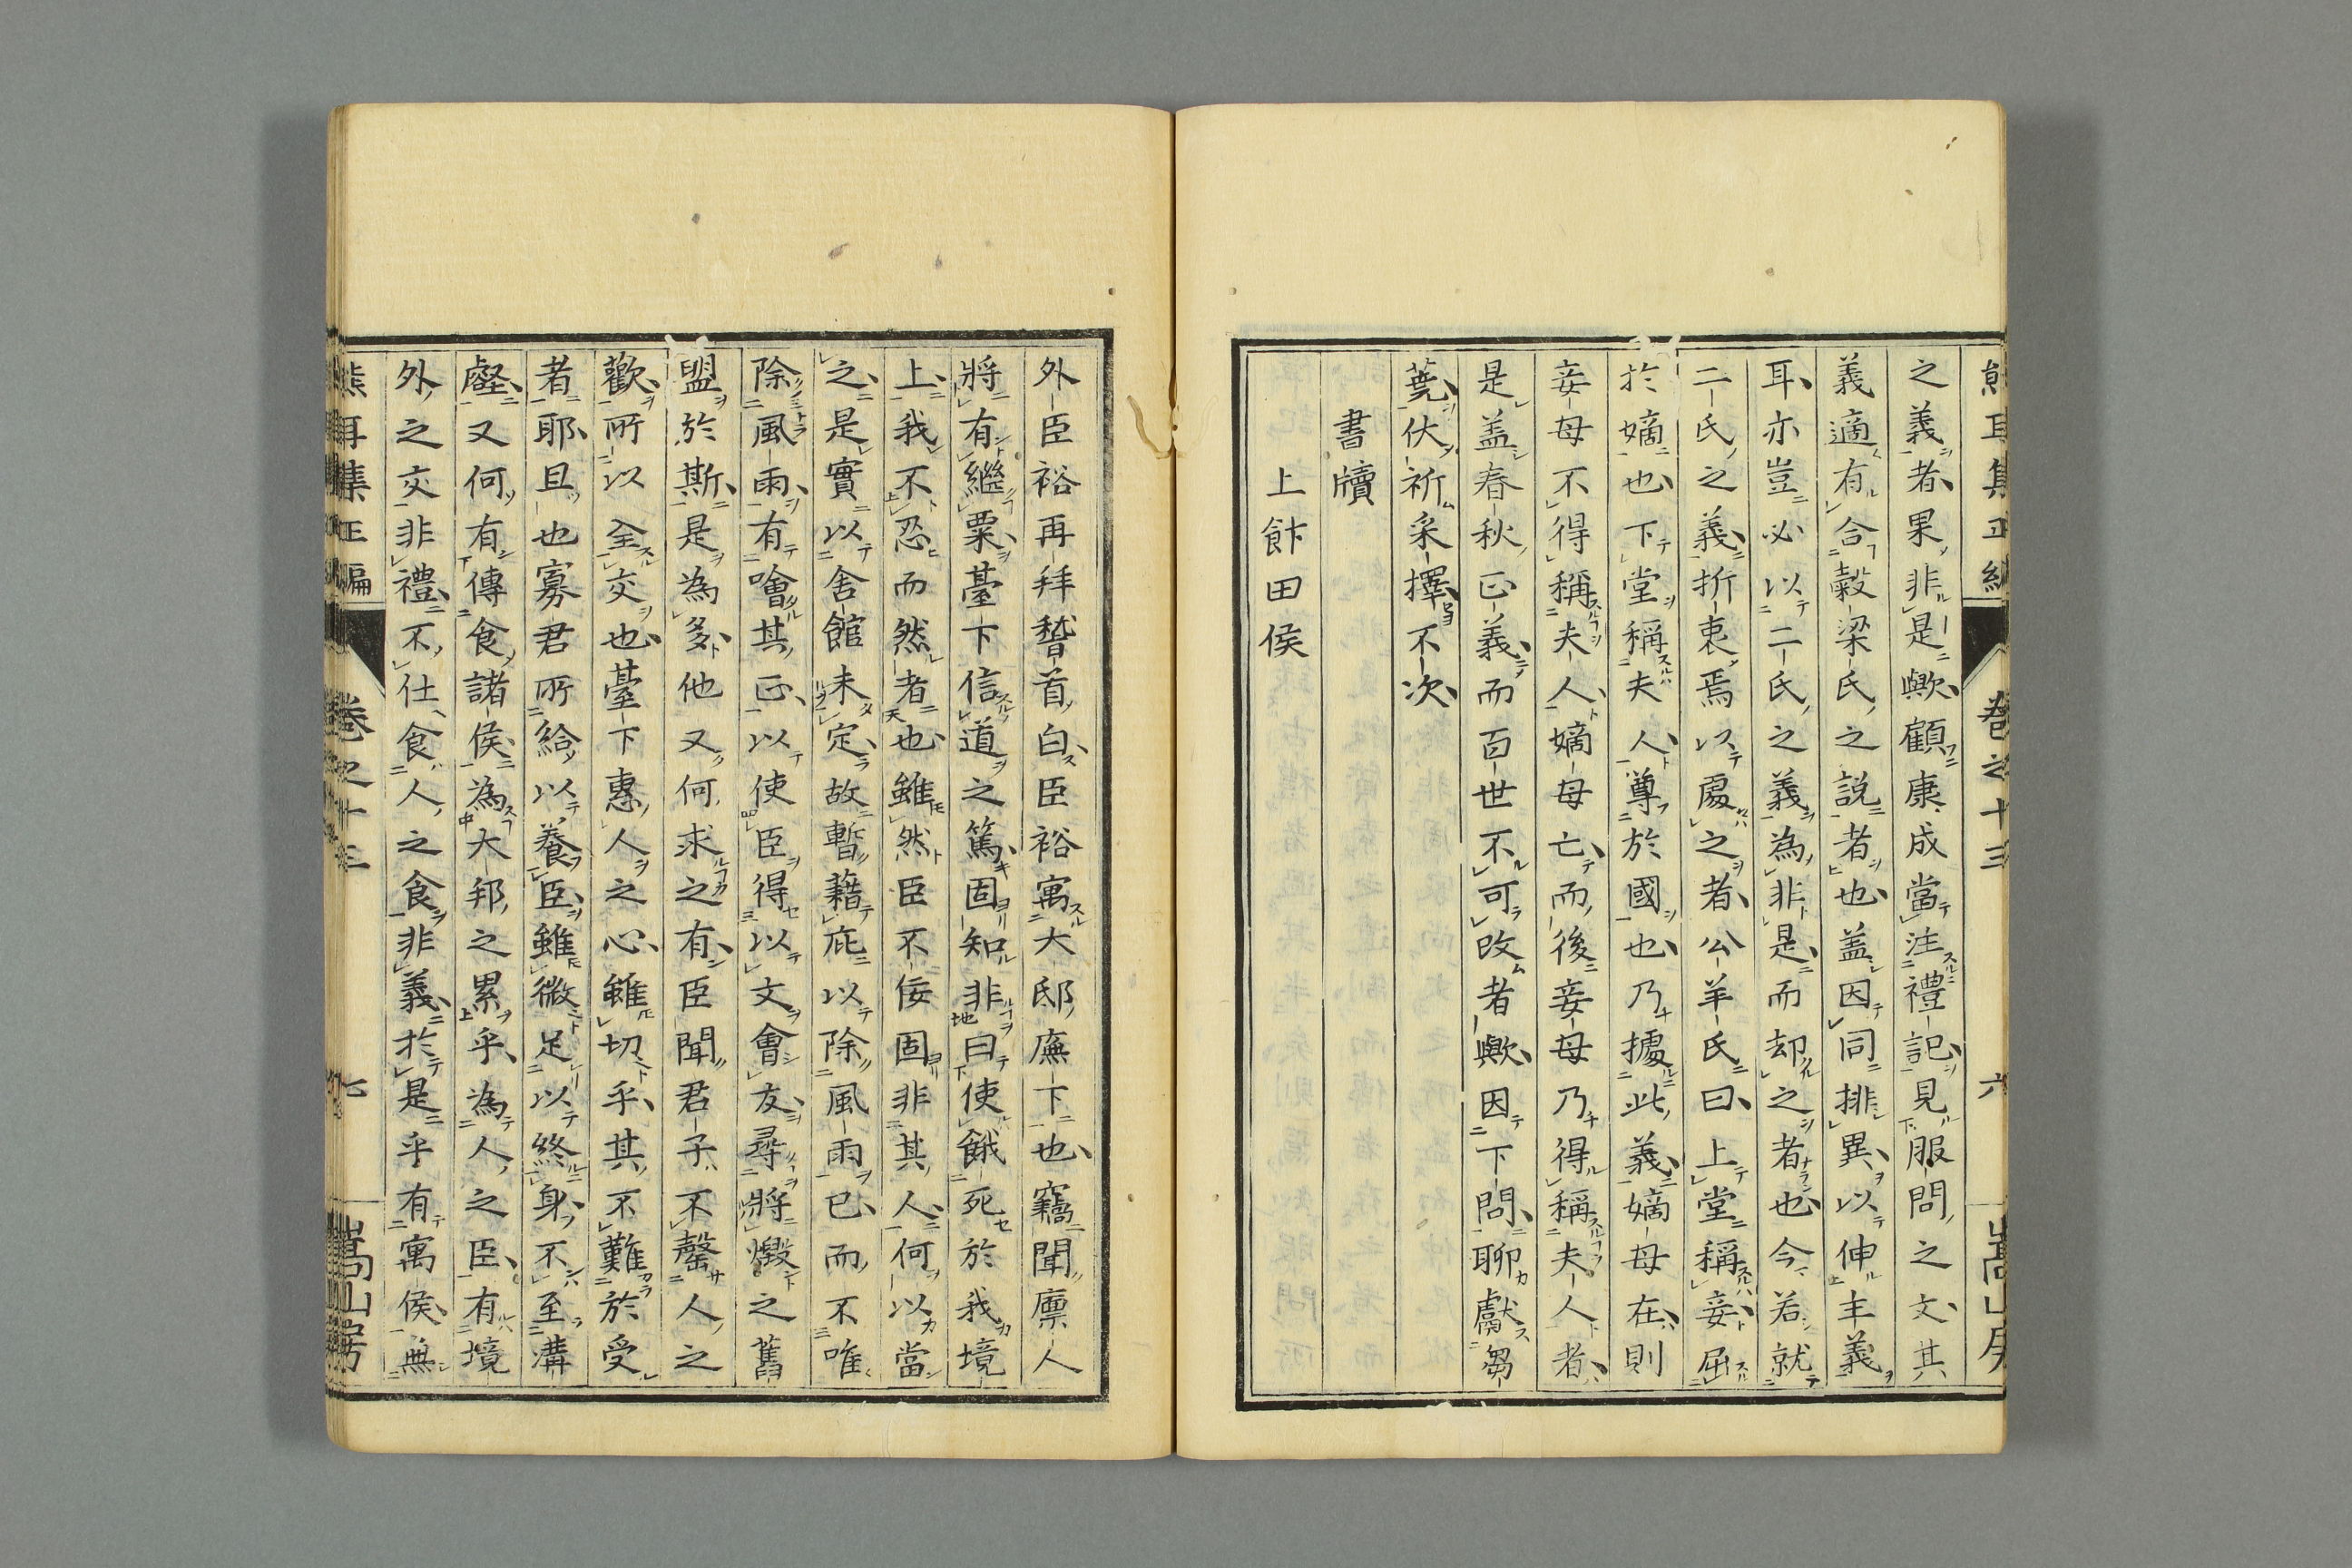 熊耳集正編 卷之十三 六 嵩山房
之義者果非是歟顧康成當注禮記見服問之文其
義適有合穀梁氏之說者也蓋因同排異以伸主義
耳亦豈必以二氏之義為非是而却之者也今若就
二氏之義折衷焉以處之者公羊氏曰上堂稱妾屈
於嫡也下堂稱夫人尊於國也乃據此義嫡母在則
妾母不得稱夫人嫡母亡而後妾母乃得稱夫人者
是蓋春秋正義而百世不可改者歟因下問聊獻芻
蕘伏祈采擇不次
書牘
上飰田侯
外臣裕再拜稽首白臣裕寓大邸廡下也竊聞廩人
將有繼粟臺下信道之篤固知非曰使餓死於我境
上我不忍而然者也雖然臣不佞固非其人何以當
之是實以舍館未定故暫藉庇以除風雨已而不唯
除風雨有噲其正以使臣得以文會友尋將燬之舊
盟於斯是為多他又何求之有臣聞君子不罄人之
歡所以全交也臺下惠人之心雖切乎其不難於受
者耶且也寡君所給以養臣雖微足以終身不至溝
壑又何有傳食諸侯為大邦之累乎為人之臣有境
外之交非禮不仕食人之食非義於是乎有寓侯無
熊耳集正編 卷之十三 七 嵩山房